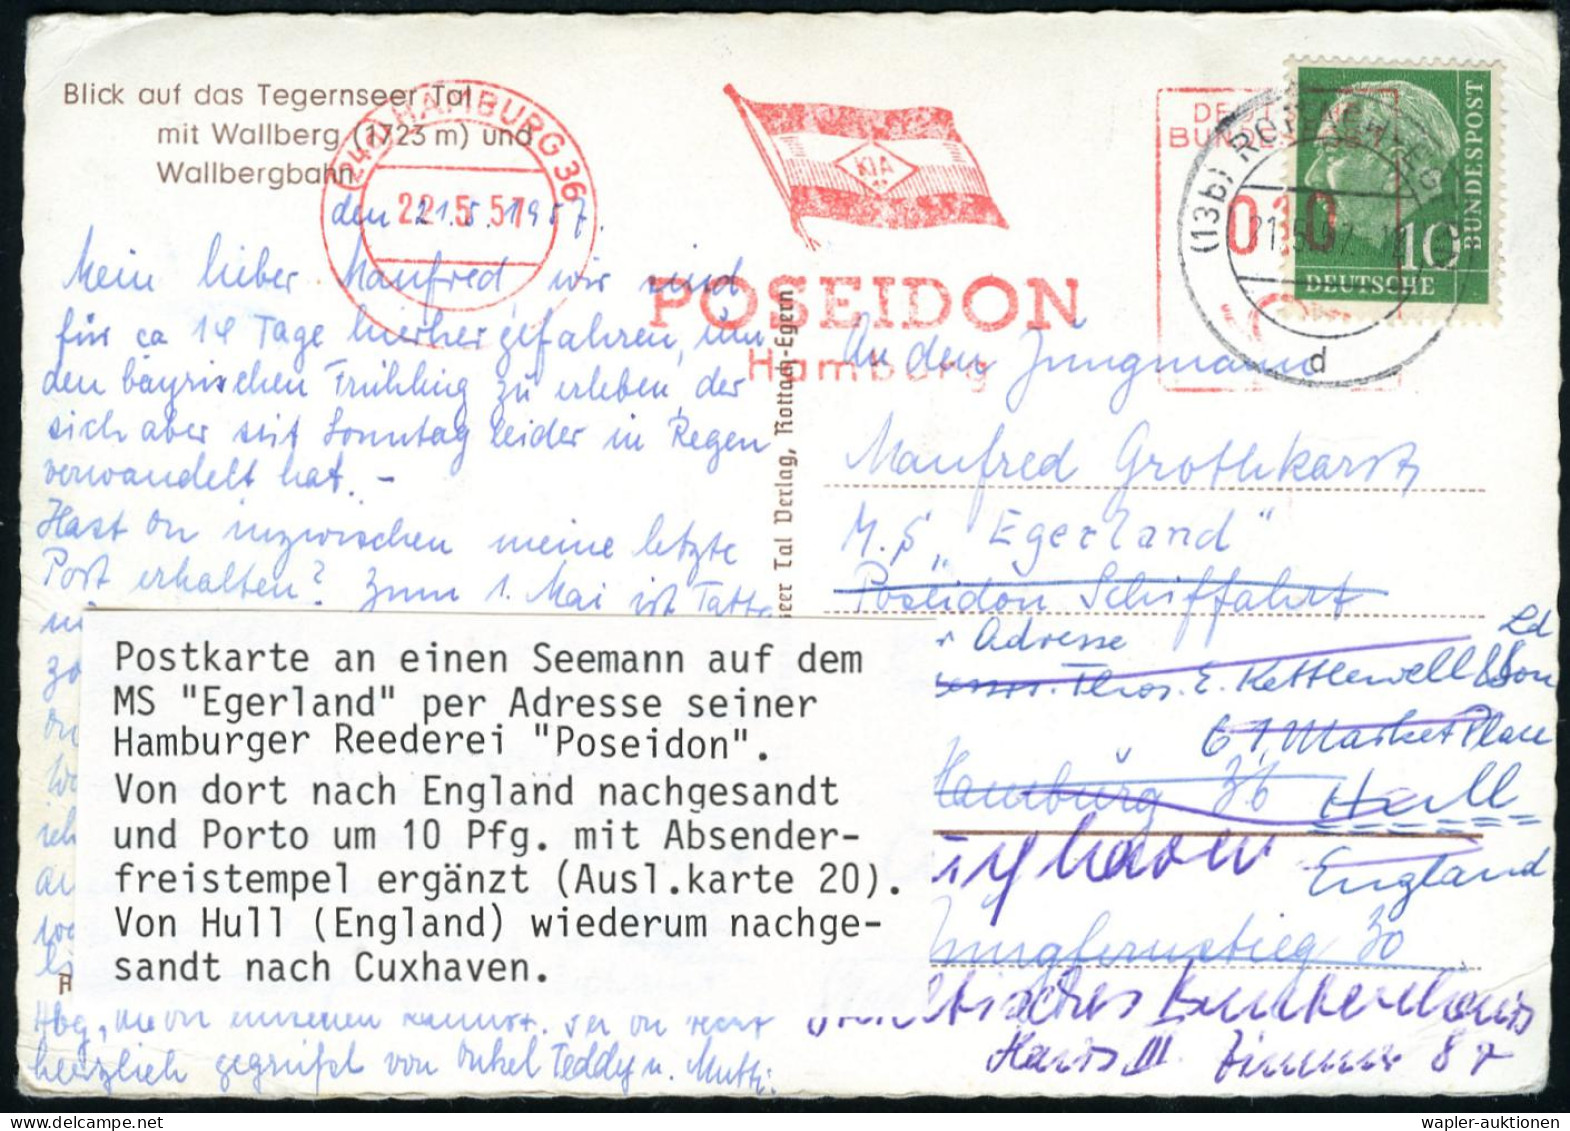 Blick auf das Tegernseer Tal
mit Wallberg (1723 m) und
Wallbergbahn
(24a) HAMBURG 36
22.5.57
KIA
POSEIDON
Hamburg
DEUTSCHE
BUNDESPOST
010
(13b) ROTTACH-EGERN
21.5.57
d
10
DEUTSCHE
BUNDESPOST
den 21.5.1957.
Mein lieber Manfred, wir sind
für ca 14 Tage hierher gefahren, um
den bayrischen Frühling zu erleben, der
sich aber seit Sonntag leider in Regen
verwandelt hat. –
Hast Du inzwischen meine letzte
Post erhalten? Zum 1. Mai ist
Hbg, wenn
herzlich gegrüßt von Onkel Teddy u. Mutti.
seer Tal Verlag, Rottach-Egern
An den Jungmann
Manfred Grothkarst
M.S. „Egerland"
Poseidon Schiffahrt
Adresse
Thos. E. Kettlewell & Son Ld
61, Market Place
Hamburg 36 Hull
England
Jungfernstieg 30
Haus III Zimmer 87
Postkarte an einen Seemann auf dem
MS "Egerland" per Adresse seiner
Hamburger Reederei "Poseidon".
Von dort nach England nachgesandt
und Porto um 10 Pfg. mit Absender-
freistempel ergänzt (Ausl.karte 20).
Von Hull (England) wiederum nachge-
sandt nach Cuxhaven.
wapler-auktionen